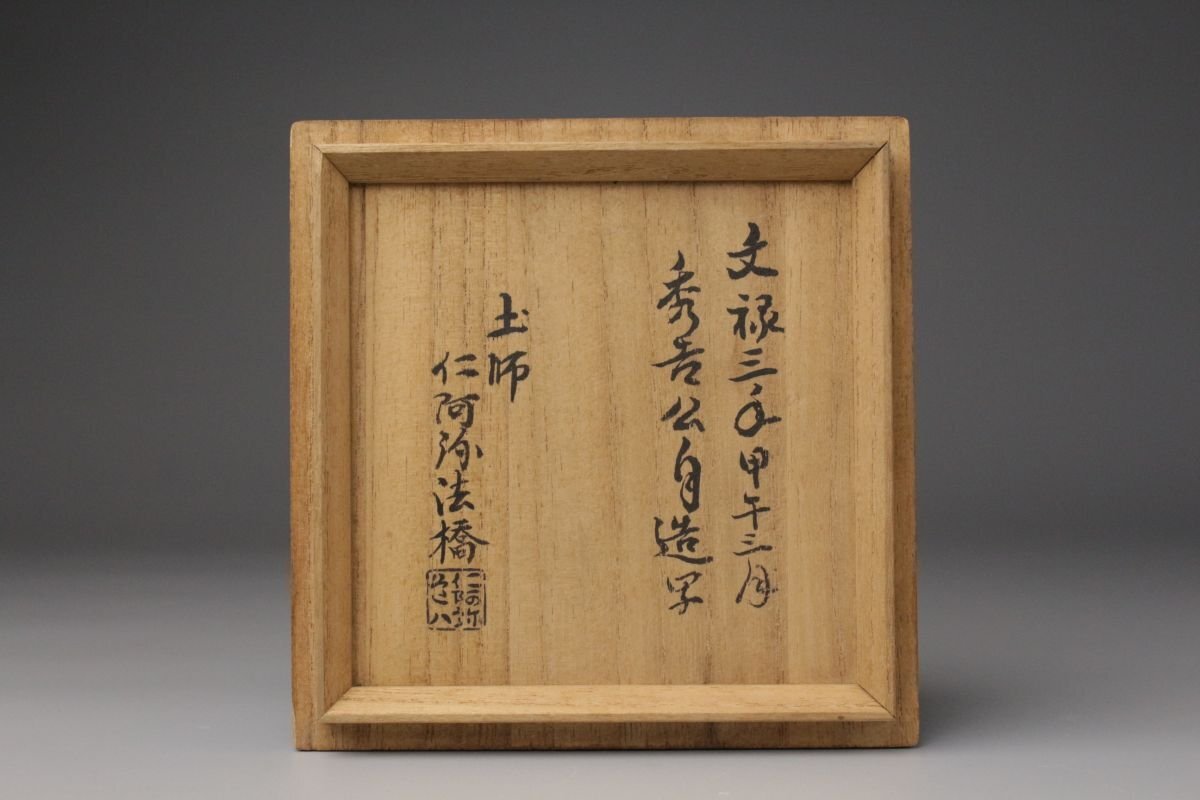 文禄三年甲午三月
秀吉公自造写
土師
仁阿弥法橋